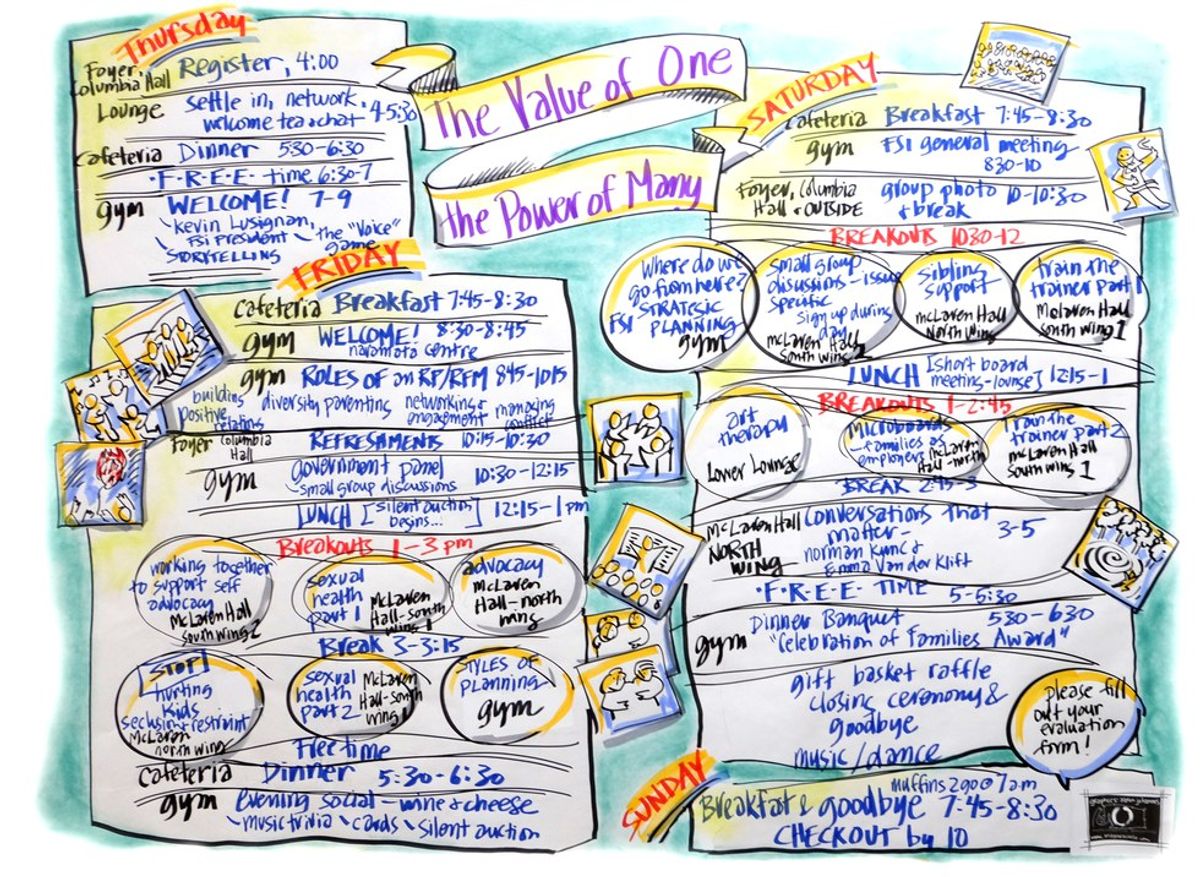 The Value of One
the Power of Many
Thursday
Foyer, Columbia Hall Register, 4:00
Lounge settle in, network · 4-5:30
welcome tea & chat
cafeteria Dinner 5:30-6:30
·F·R·E·E· time 6:30-7
gym WELCOME! 7-9
Kevin Lusignan,
FSI President
the "Voice" game
STORYTELLING
FRIDAY
cafeteria Breakfast 7:45-8:30
gym WELCOME! 8:30-8:45
naramata centre
gym ROLES of an RP/RFM 845-1015
building positive relations
diversity parenting
networking & engagement
managing conflict
Foyer Columbia Hall REFRESHMENTS 10:15-10:30
gym government panel 10:30-12:15
small group discussions
LUNCH [silent auction begins...] 12:15-1 pm
Breakouts 1-3 pm
working together
to support self
advocacy
McLaren Hall
south wing 2
sexual
health
part 1
McLaren
Hall-south
wing 1
advocacy
McLaren
Hall-north
wing
Break 3-3:15
STOP!
hurting
kids
seclusion & restraint
McLaren
north wing
sexual
health
part 2
McLaren
Hall-south
wing 1
STYLES OF
PLANNING
gym
Free time
cafeteria Dinner 5:30-6:30
gym evening social - wine & cheese
music trivia cards silent auction
SATURDAY
cafeteria Breakfast 7:45-8:30
gym FSI general meeting
830-10
Foyer, Columbia Hall & OUTSIDE group photo & break 10-10:30
BREAKOUTS 1030-12
Where do we
go from here?
STRATEGIC
FSI PLANNING
gym
small group
discussions - issue
specific
sign up during
day
McLaren Hall
South wing 2
sibling
support
McLaren Hall
North wing
train the
trainer part 1
McLaren Hall
south wing 1
LUNCH [short board meeting-lounge] 12:15-1
BREAKOUTS 1-2:45
art
therapy
Lower Lounge
Microboards
- families as
employers McLaren
Hall-north
Train the
trainer part 2
McLaren Hall
south wing 1
BREAK 2:45-3
McLaren Hall NORTH WING
conversations that
matter- 3-5
norman Kunc &
Emma Van der Klift
·F·R·E·E· TIME 5-5:30
gym Dinner Banquet 530-630
"Celebration of Families Award"
gift basket raffle
closing ceremony &
goodbye
music/dance
please fill
out your
evaluation
form!
SUNDAY
muffins 2 go @ 7am
Breakfast & goodbye 7:45-8:30
CHECKOUT by 10